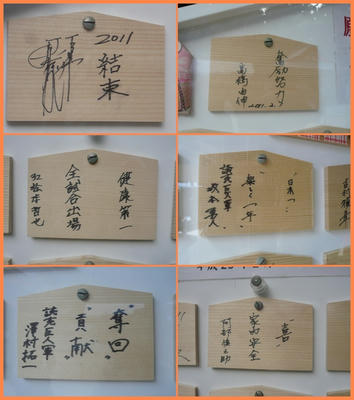 2011
結束
奮励努力
高橋由伸
2011.2.
健康第一
全試合出場
松本哲也
日本一
読売巨人軍
坂本勇人
奪回
"貢献"
読売巨人軍
澤村拓一
喜
家内安全
阿部慎之助